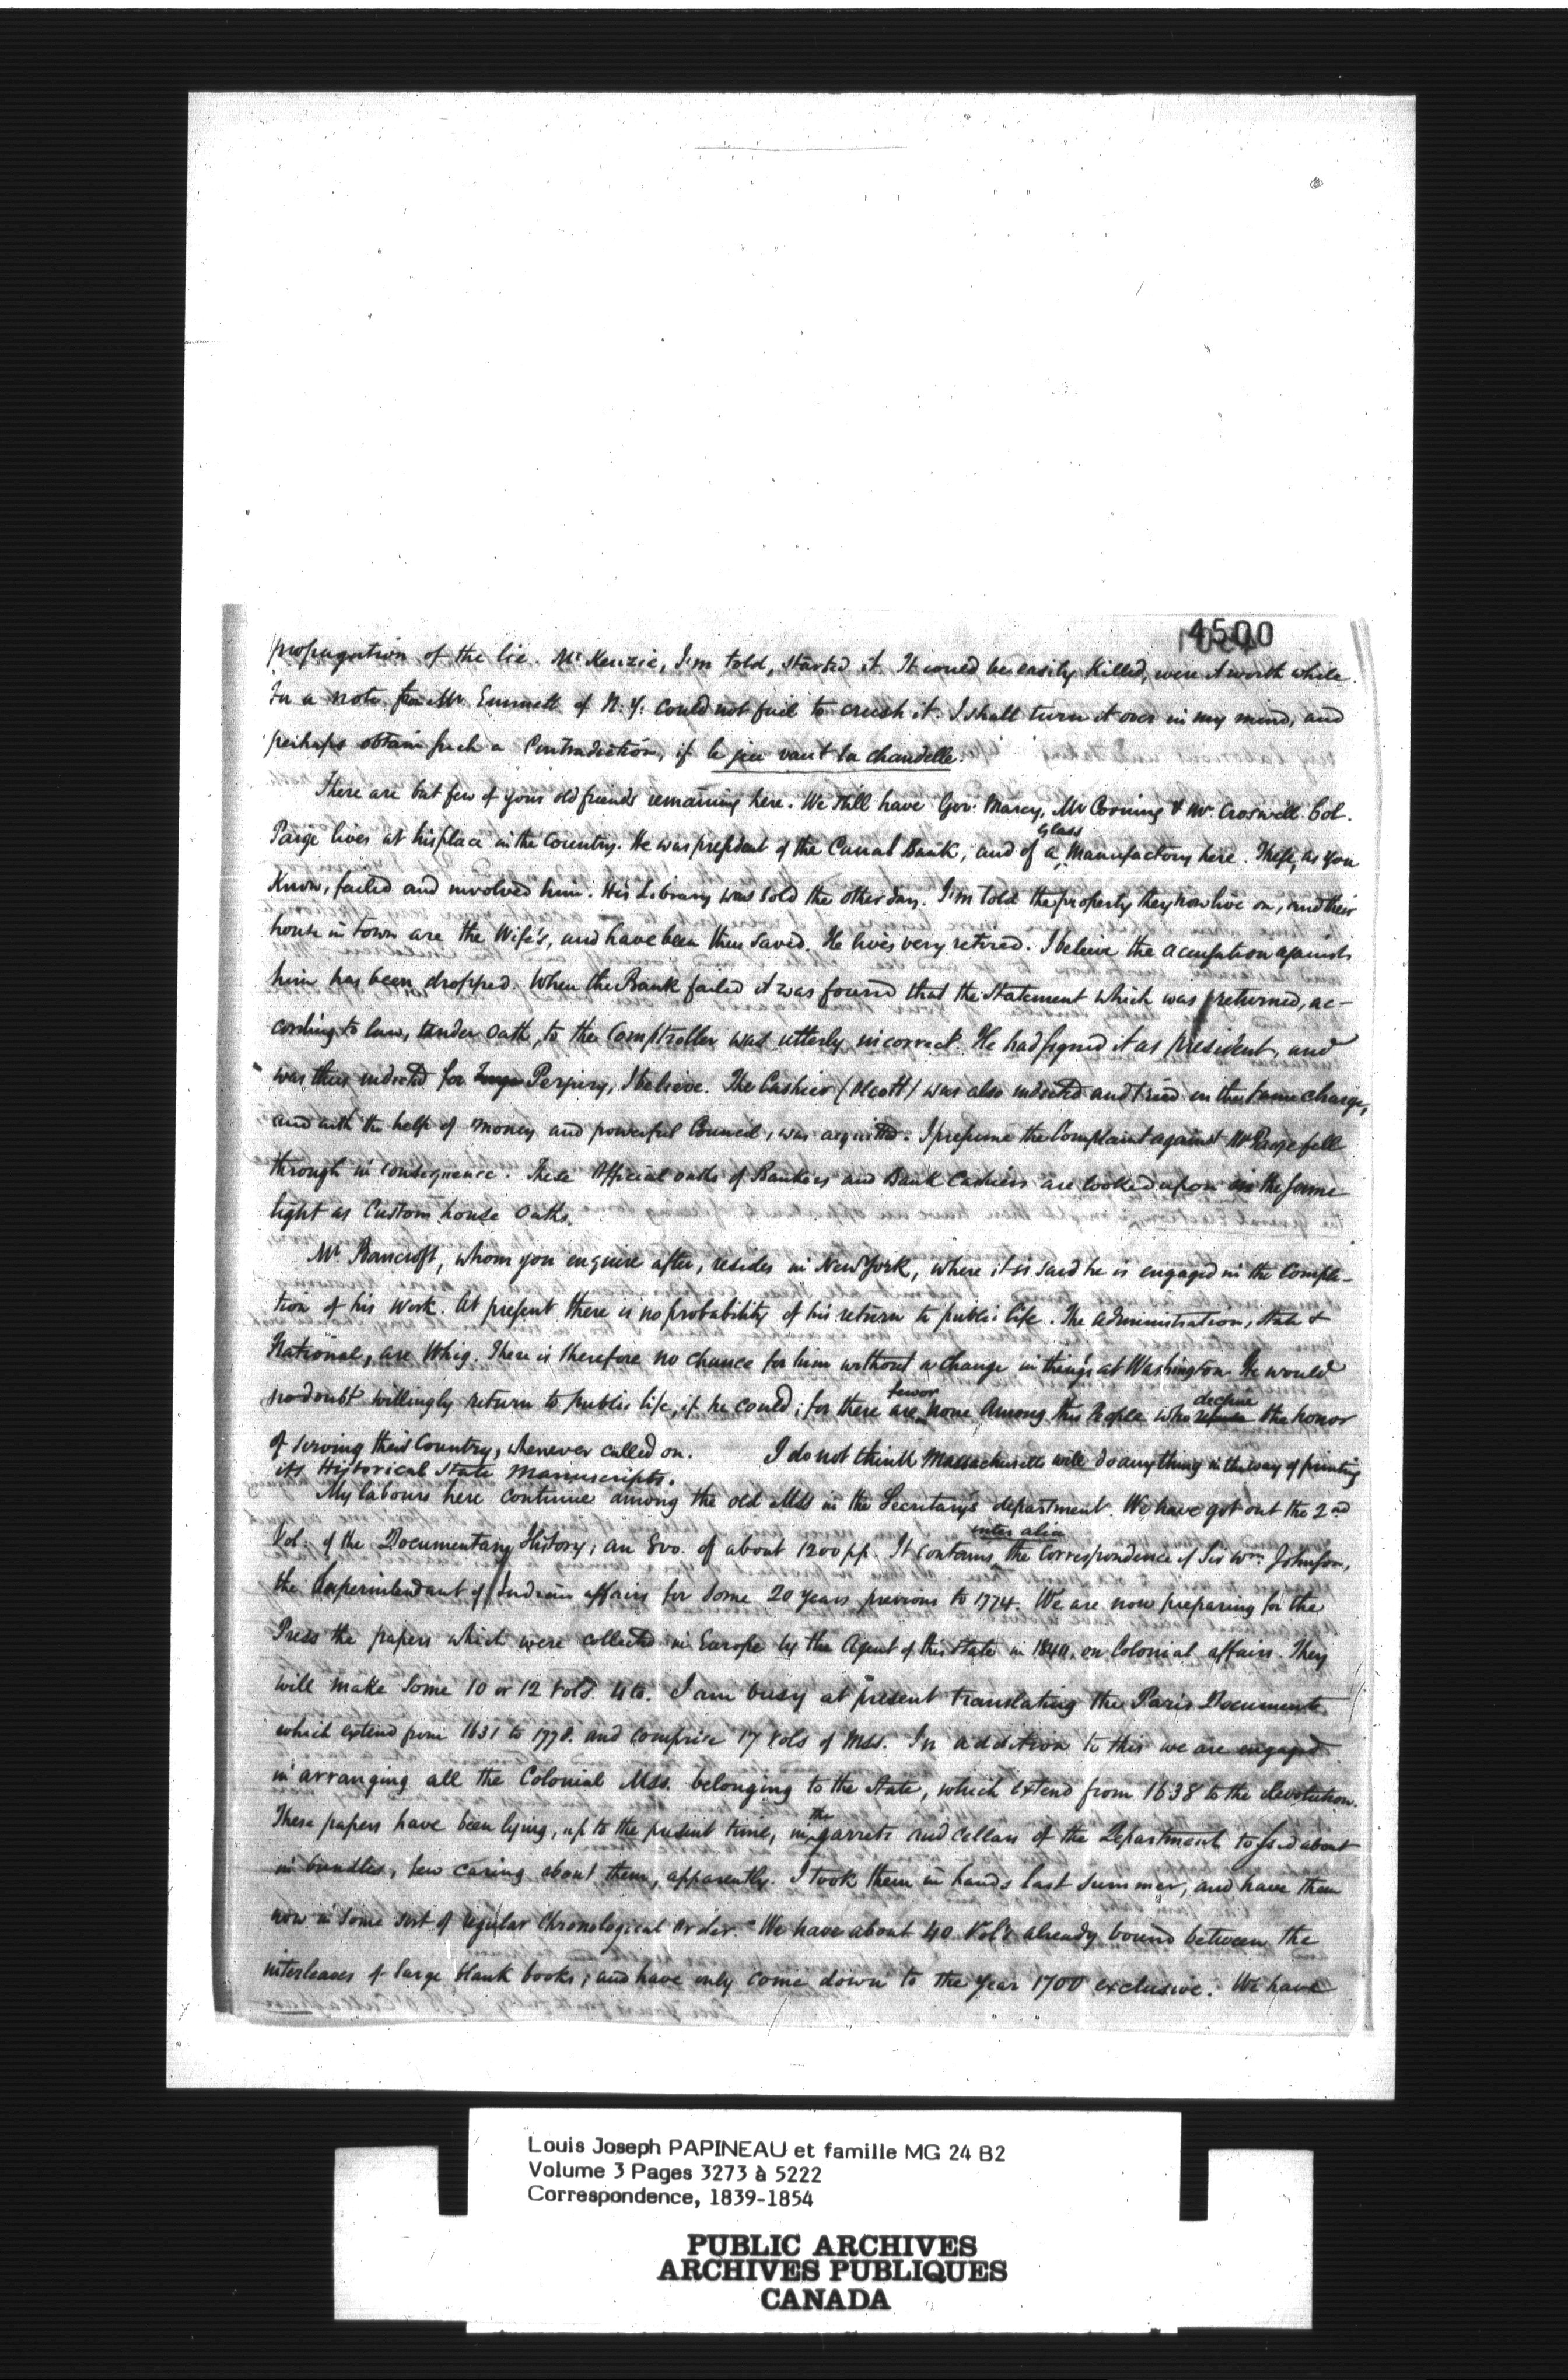 4500
propagation of the lie. Mr Kenzie, I'm told, started it. It could be easily killed, were it worth while.
For a note from Mr. Emmett of N. Y. could not fail to crush it. I shall turn it over in my mind, and
perhaps obtain such a Contradiction, if le jeu vaut la chandelle.
There are but few of your old friends remaining here. We still have Gov: Marcy, Mr Corning & Mr Croswell. Col.
Paige lives at his place in the Country. He was president of the Canal Bank, and of a Glass Manufactory here. These, as you
Know, failed and involved him. His Library was sold the other day. I'm told the property they now live on, and their
house in town are the Wife's, and have been thus saved. He lives very retired. I believe the accusation against
him has been dropped. When the Bank failed it was found that the Statement which was returned, ac-
cording to law, under oath, to the Comptroller was utterly incorrect. He had signed it as president, and
was thus indicted for Perjury, I believe. The Cashier (Olcott) was also indicted and tried on the same charge,
and with the help of money and powerful Council, was acquitted. I presume the Complaint against Mr Paige fell
through in consequence. These Official oaths of Bankers and Bank Cashiers are looked upon in the same
light as Custom house Oaths.
Mr Bancroft, whom you enquire after, resides in New York, where it is said he is engaged in the Comple-
tion of his Work. At present there is no probability of his return to public life. The administration, State &
National, are Whig. There is therefore no chance for him without a change in things at Washington. He would
no doubt willingly return to public life, if he could; for there are few or none Among this People who refuse decline the honor
of serving their Country, whenever called on. I do not think Massachusetts will do any thing in the way of printing
its Historical State Manuscripts.
My labours here continue among the old Mss in the Secretary's department. We have got out the 2nd
Vol: of the Documentary History; an 8vo. of about 1200 pp. It contains inter alia the Correspondence of Sir Wm. Johnson,
the Superintendant of Indian affairs for some 20 years previous to 1774. We are now preparing for the
Press the papers which were collected in Europe by the Agent of this State in 1840, on Colonial affairs. They
will make some 10 or 12 Vols. 4to. I am busy at present translating the Paris Documents
which extend from 1631 to 1778. and comprise 17 Vols of Mss. In addition to this we are engaged
in arranging all the Colonial Mss. belonging to the State, which extend from 1638 to the Revolution.
These papers have been lying, up to the present time, in the garrets and cellars of the Department tossed about
in bundles, few caring about them, apparently. I took them in hands last summer, and have them
now in some sort of regular Chronological order. We have about 40 Vols already bound between the
interleaves of large blank books; and have only come down to the Year 1700 exclusive. We have
Louis Joseph PAPINEAU et famille MG 24 B2
Volume 3 Pages 3273 à 5222
Correspondence, 1839-1854
PUBLIC ARCHIVES
ARCHIVES PUBLIQUES
CANADA